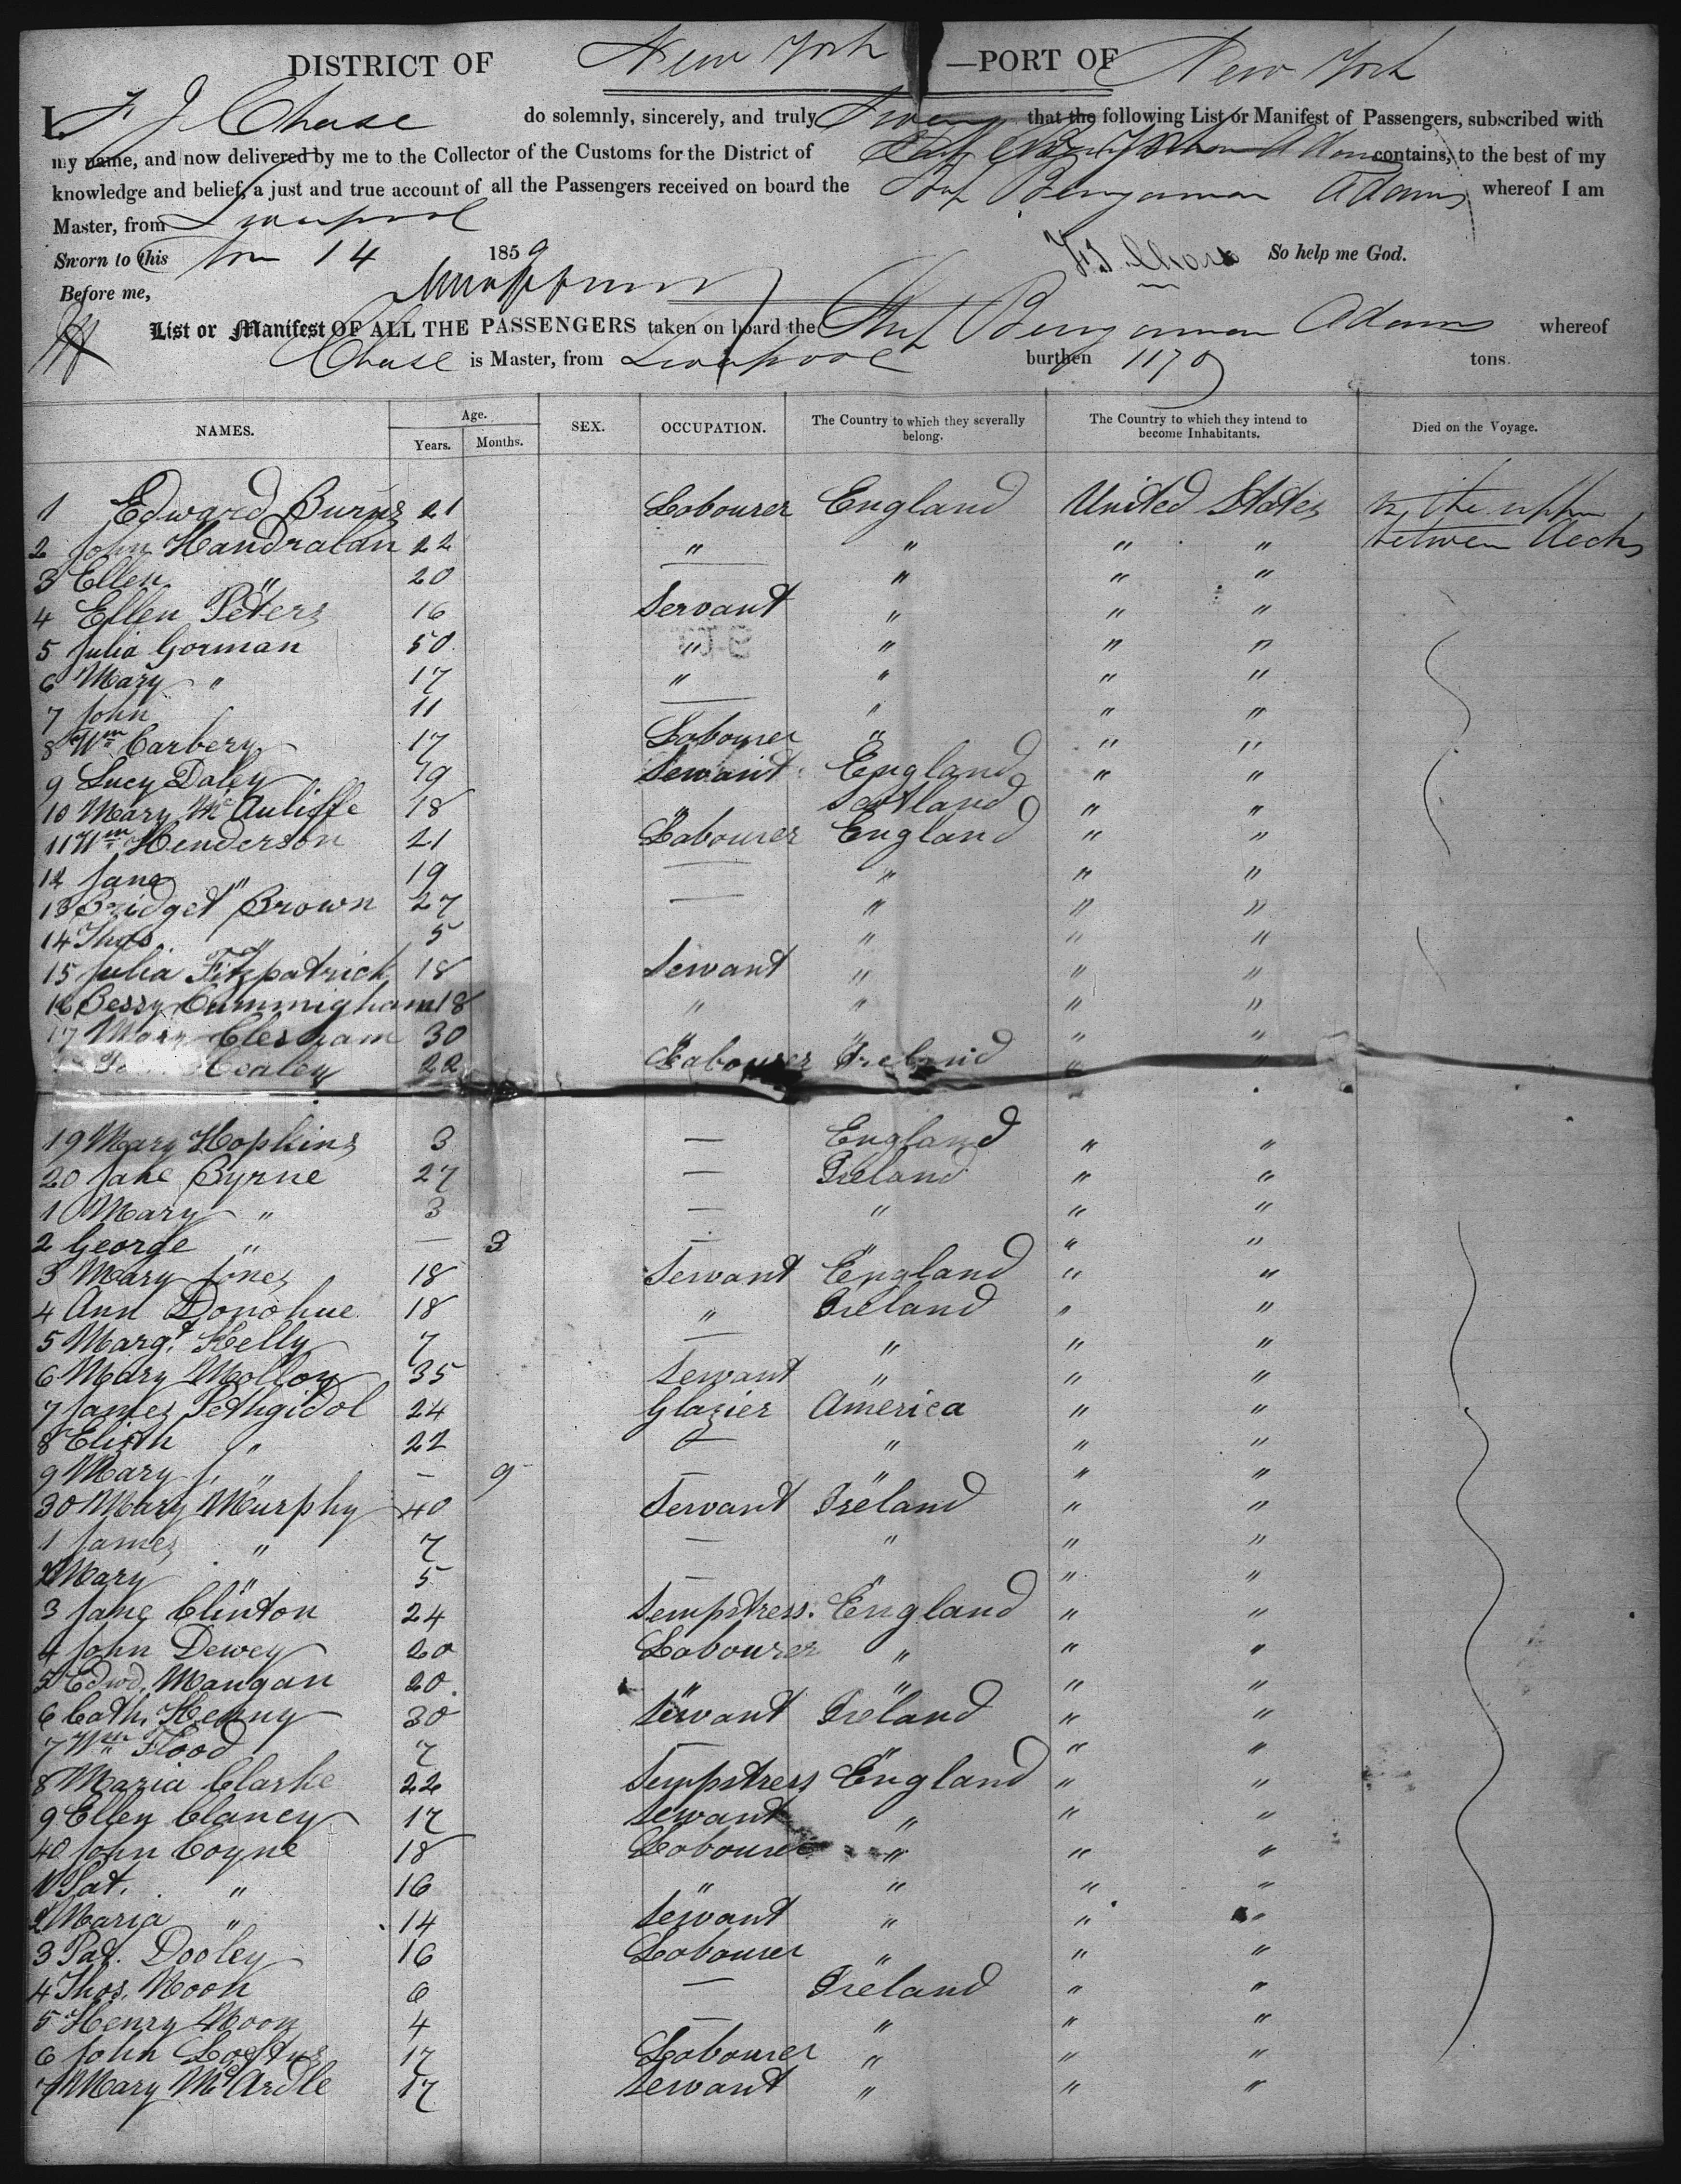 DISTRICT OF New York —PORT OF New York
I, F J Chase do solemnly, sincerely, and truly Swear that the following List or Manifest of Passengers, subscribed with
my name, and now delivered by me to the Collector of the Customs for the District of contains, to the best of my
knowledge and belief, a just and true account of all the Passengers received on board the Benjamin Adams whereof I am
Master, from Liverpool
Sworn to this 14 1859 F. J. Chase So help me God.
Before me,
List or Manifest OF ALL THE PASSENGERS taken on board the Ship Benjamin Adams whereof
Chase is Master, from Liverpool burthen 1170 tons.
NAMES. Age. Years. Months. SEX. OCCUPATION. The Country to which they severally belong. The Country to which they intend to become Inhabitants. Died on the Voyage.
1 Edward Burns 21 Labourer England United States in the upper
2 John Handralan 22 " " " " between decks
3 Ellen " 20 — " " "
4 Ellen Peters 16 Servant " " "
5 Julia Gorman 50 " " " "
6 Mary " 17 " " " "
7 John 11 — " " "
8 Wm Carbery 17 Labourer " " "
9 Lucy Daley 19 Servant England " "
10 Mary McAuliffe 18 " Scotland " "
11 Wm Henderson 21 Labourer England " "
12 Jane " 19 — " " "
13 Bridget Brown 27 — " " "
14 Thos. " 5 " " "
15 Julia Fitzpatrick 18 Servant " " "
16 Bessy Cummigham 18 " " " "
17 Mary Clesham 30 " " " "
Healey 22 Labourer Ireland " "
19 Mary Hopkins 3 — England " "
20 Jane Byrne 27 — Ireland " "
1 Mary " 3 — " " "
2 George " — 3 — " " "
3 Mary Jones 18 Servant England " "
4 Ann Donohue 18 " Ireland " "
5 Margt. Kelly 7 — " " "
6 Mary Molloy 35 Servant " " "
7 James Pethgidol 24 Glazier America " "
8 Elizth " 22 — " " "
9 Mary J. " — 9 — " " "
30 Mary Murphy 40 Servant Ireland " "
1 James " 7 — " " "
2 Mary " 5 — " " "
3 Jane Clinton 24 Sempstress. England " "
4 John Dewey 20 Labourer " " "
5 Edwd. Mangan 20 " " " "
6 Cath. Kenny 30 Servant Ireland " "
7 Wm Flood 7 — " " "
8 Maria Clarke 22 Sempstress England " "
9 Ellen Clancy 17 Servant " " "
40 John Coyne 18 Labourer " " "
1 Pat. " 16 " " " "
2 Maria " 14 Servant " " "
3 Pat. Dooley 16 Labourer " " "
4 Thos. Moon 6 — Ireland " "
5 Henry Moon 4 — " " "
6 John Loftus 17 Labourer " " "
7 Mary McArdle 17 Servant " " "